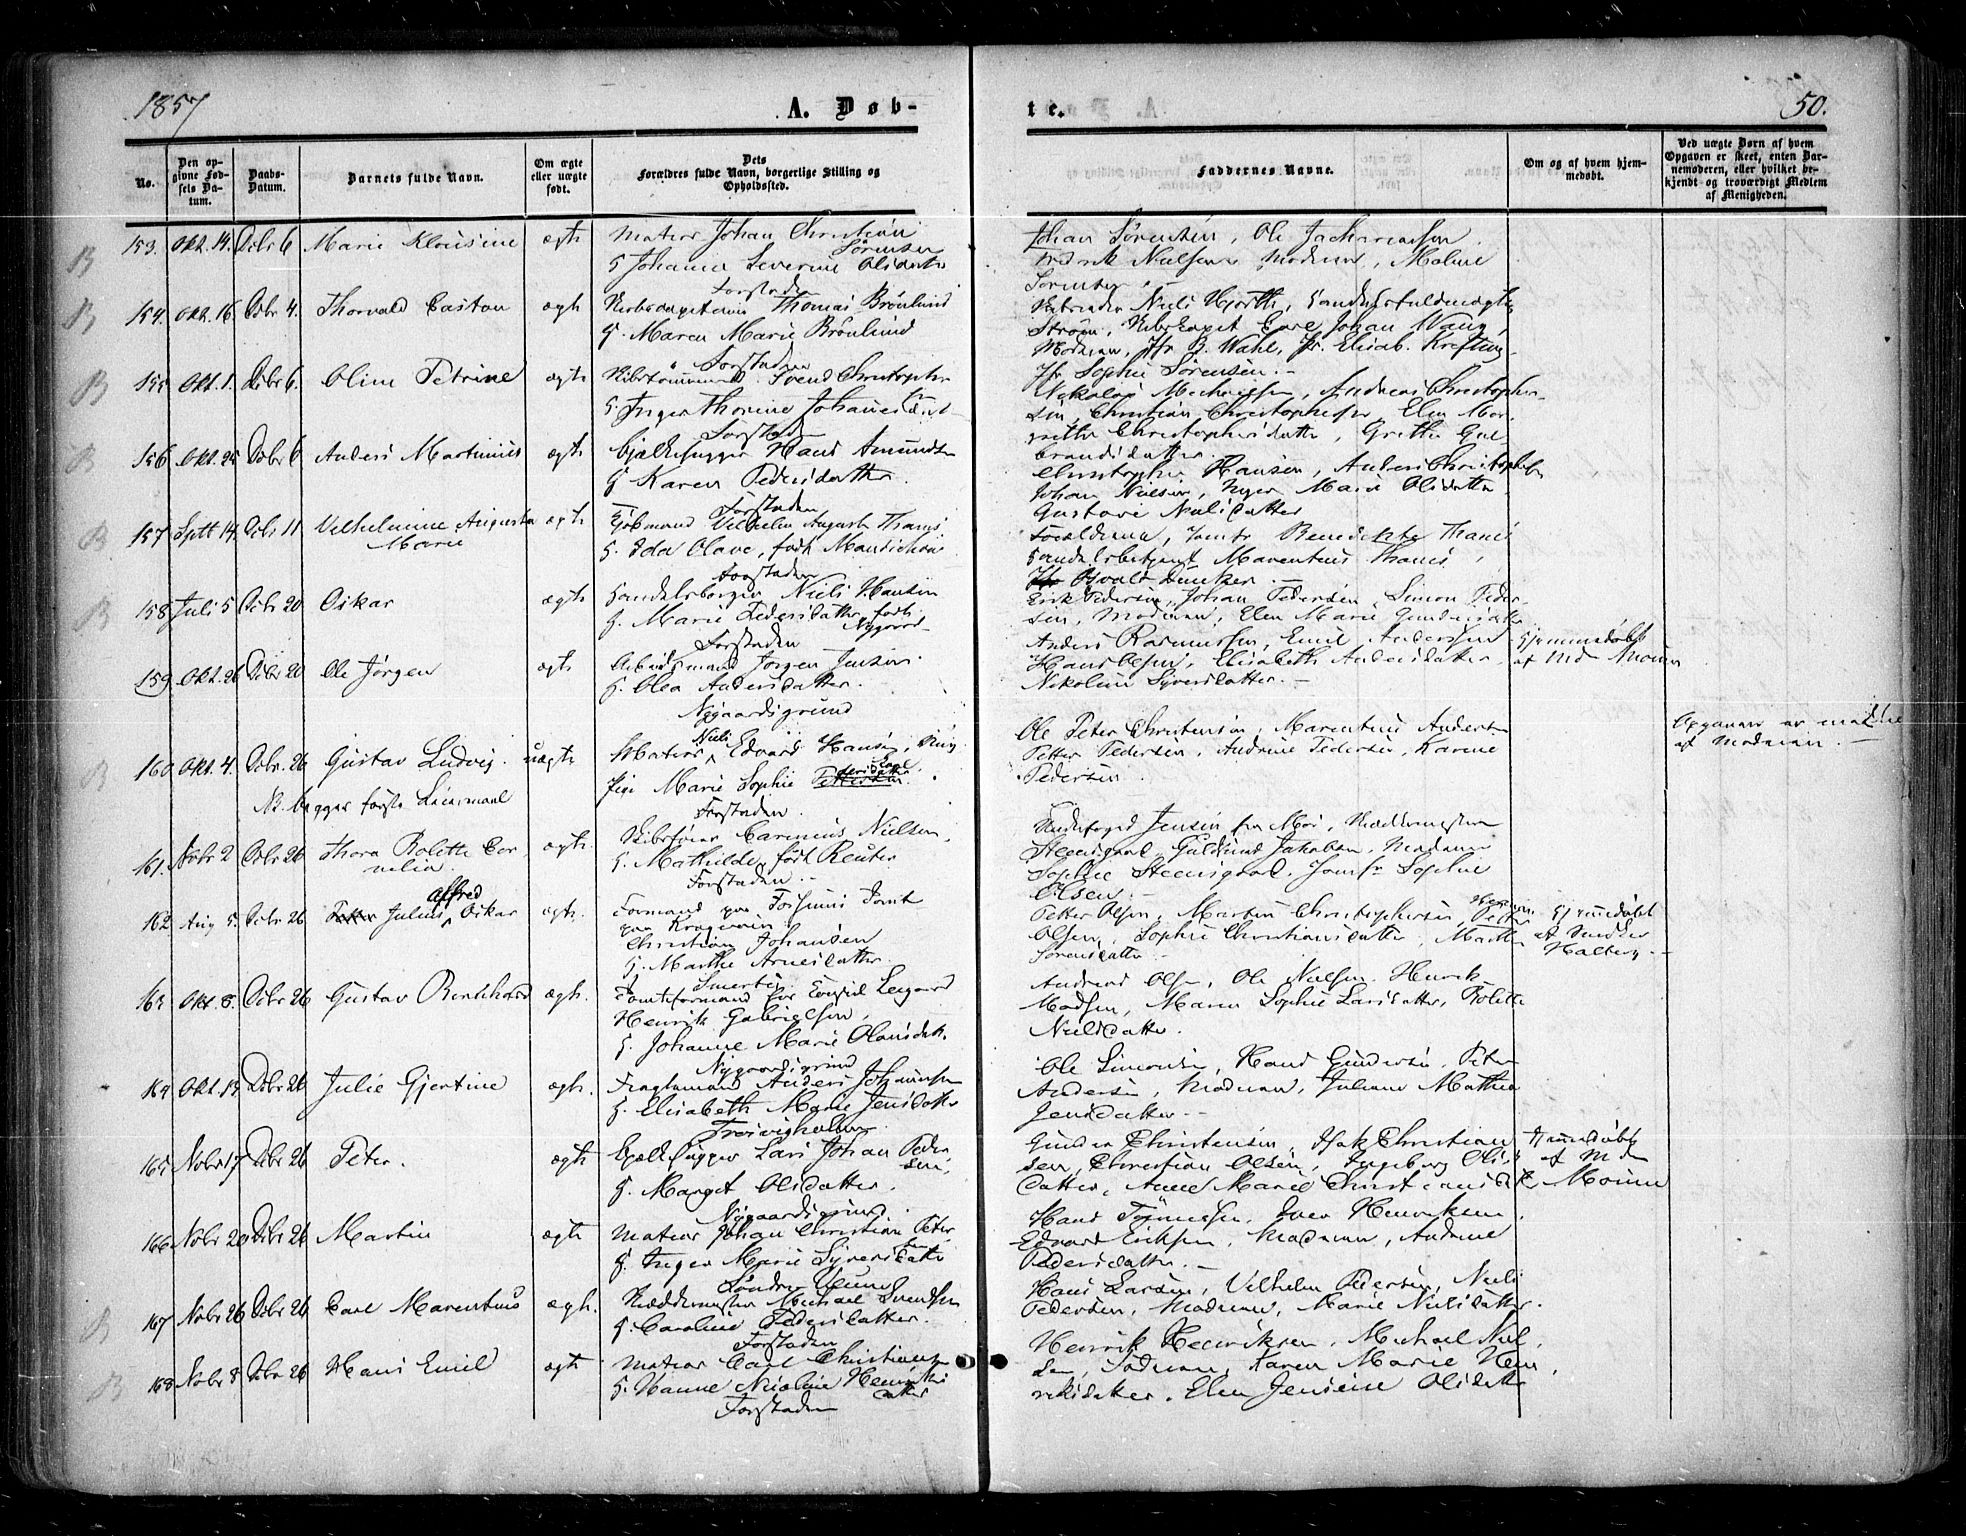 1857
A. Døb-
te.
50.
No.
Den op-
givne Fød-
sels Da-
tum.
Daabs-
Datum.
Barnets fulde Navn.
Om ægte
eller uægte
født.
Dets
Forældres fulde Navn, borgerlige Stilling og
Opholdssted.
Faddernes Navne.
Om og af hvem hjem-
medøbt.
Ved uægte Børn af hvem
Opgaven er skeet, enten Bar-
nemoderen, eller hvilket be-
kjendt og troværdigt Medlem
af Menigheden.
B 153. Okt. 14. Dcbr 6 Marie Klousine ægte
Matros Johan Christian
Sörensen
& Johanna Severine Olsdatter
Forstaden
Johan Sörensen, Ole Zachariassen
Fredrik Nielsen, Madmen, Maline
Sörensen
B 154. Okt. 16. Dcbr 4. Thorvald Caston ægte
Skibscapitain Thomas Brönlund
& Maren Marie Brönlund
Forstaden
Niels Hjorth, Handelsfuldmægtig
Ström, Skibskapt Johan Wang,
Madmen, Jfr B. Wahl, Jfr. Elisab. Krefting
Jfr Sophie Sörensen.
B 155 Okt. 1. Dcbr 6. Oline Petrine ægte
Skibstömmermd Svend Christophersen
& Inger Thorine Johannesdatter
Forstaden
Nikolai Michelsen, Andreas Christopher-
sen, Christian Christophersen, Elen Mar-
grethe Christophersdatter, Grethe Gul-
brandsdatter
B 156 Okt. 25 Dcbr 6 Anders Martinius ægte
Bjælkehugger Hans Amundsen
& Karen Pedersdatter.
Forstaden
Christopher Hansen, Anders Christophersen
Johan Nielsen, Inger Marie Olsdatter
Gustava Nielsdatter
B 157 Septr 14. Dcbr 11 Velhelmine Augusta ægte
Marie
Kjöbmand Velhelm August Thams
& Ida Olave, født
Forstaden
Forældrene, Jomfr Benedikte Thams
Handelsbetjent Marentius Thams,
Osvald Duncker.
B 158 Juli 5 Dcbr 20 Oskar ægte
Handelsborger Niels Hansen
& Marie Pedersdatter, født
Nygaard
Forstaden
Erik Pedersen, Johan Pedersen, Simon Peder-
sen, Madmen, Elen Marie Gundersdatter
159 Okt. 26 Dcbr 20 Ole Jörgen ægte
Arbeidsmand Jörgen Jensen
& Olea Andersdatter.
Nygaardsgrund
Anders Rasmussen, Emil Andersen
Hans Olsen, Elisabeth Andersdatter,
Nikoline Syversdatter.
Hjemmedöbt
af Md. Moinn
B 160 Okt. 4. Dcbr. 26 Gustav Ludvig. uægte
NB. begges første Leiermaal
Matros Niels Edvard Hansen,
Pige Marie Sophie
Forstaden
Ole Peter Christensen, Marentius Andersen
Petter Pedersen, Andrine Pedersen, Karine
Pedersen
Opgaven er meddelt
af Moderen.
161. Nobr 2 Dcbr 26 Thora Bolette Cor- ægte.
nelia
Skibsförer Carinius Nielsen
& Mathilde, født Reuter
Forstaden.
Underfoged Jensen fra Mos,
Steensgaard, Guldsmd Jakobsen, Madame
Sophie Steensgaard, Jomfr Sophie
Olsen.
162 Aug 5. Dcbr 26 Petter Julius Alfred Oskar ægte.
Formand paa Fossums Tomt
paa Kragerøen
Christian Johansen
& Marthe Arnesdatter.
Petter Olsen, Martin Christophersen, Peter
Olsen, Sophie Christiansdatter, Marthe
Sörensdatter
Hjemmedöbt
af
163 Okt. 8. Dcbr 26 Gustav Bernhard ægte.
Tomteformand for
Henrik Gabrielsen,
& Johanne Marie Olausdatter.
Nygaardsgrund
Andreas Olsen, Ole Nielsen, Henrik
Madsen, Maren Sophie Larsdatter, Bolette
Nielsdatter.
164 Okt. 13. Dcbr 26 Julie Gjertine ægte.
Anders Johannsen
& Elisabeth Marie Jensdatter
Ole Simonsen, Hans Gundersen, Peter
Andersen, Madmen, Juliane Mathea
Jensdatter.
165 Nobr 17 Dcbr 26 Peter. ægte
Bjælkehugger Lars Johan Peder-
sen,
& Marget Olsdatter.
Nygaardsgrund
Gunder Christensen, Isak Christian-
sen, Christian Olsen, Ingeborg Ols-
datter, Anne Marie Christiansdtr
Hjemmedöbt
af Mdm
Moinn
166 Nobr 20 Dcbr 26 Martin ægte
Matros Johan Christian Peter-
sen
& Inger Marie Syversdatter
Hans Tönnessen, Iver Henriksen
Edvard Eriksen, Madmen, Andrine
Pedersdatter.
B 167 Nobr 26 Dcbr 26 Carl Marentius ægte.
Michael Svendsen
& Caroline Pedersdatter.
Forstaden
Hans Larsen, Velhelm Pedersen, Niels
Pedersen, Madmen, Marie Nielsdatter.
B 168 Nobr 8 Dcbr 26 Hans Emil ægte
Matros Carl Christiansen
& Hanne Nicoline Henriks-
datter
Forstaden
Henrik Henriksen, Michael Niel-
sen, Madmen, Karen Marie Hen-
riksdatter, Elen Jensine Olsdatter